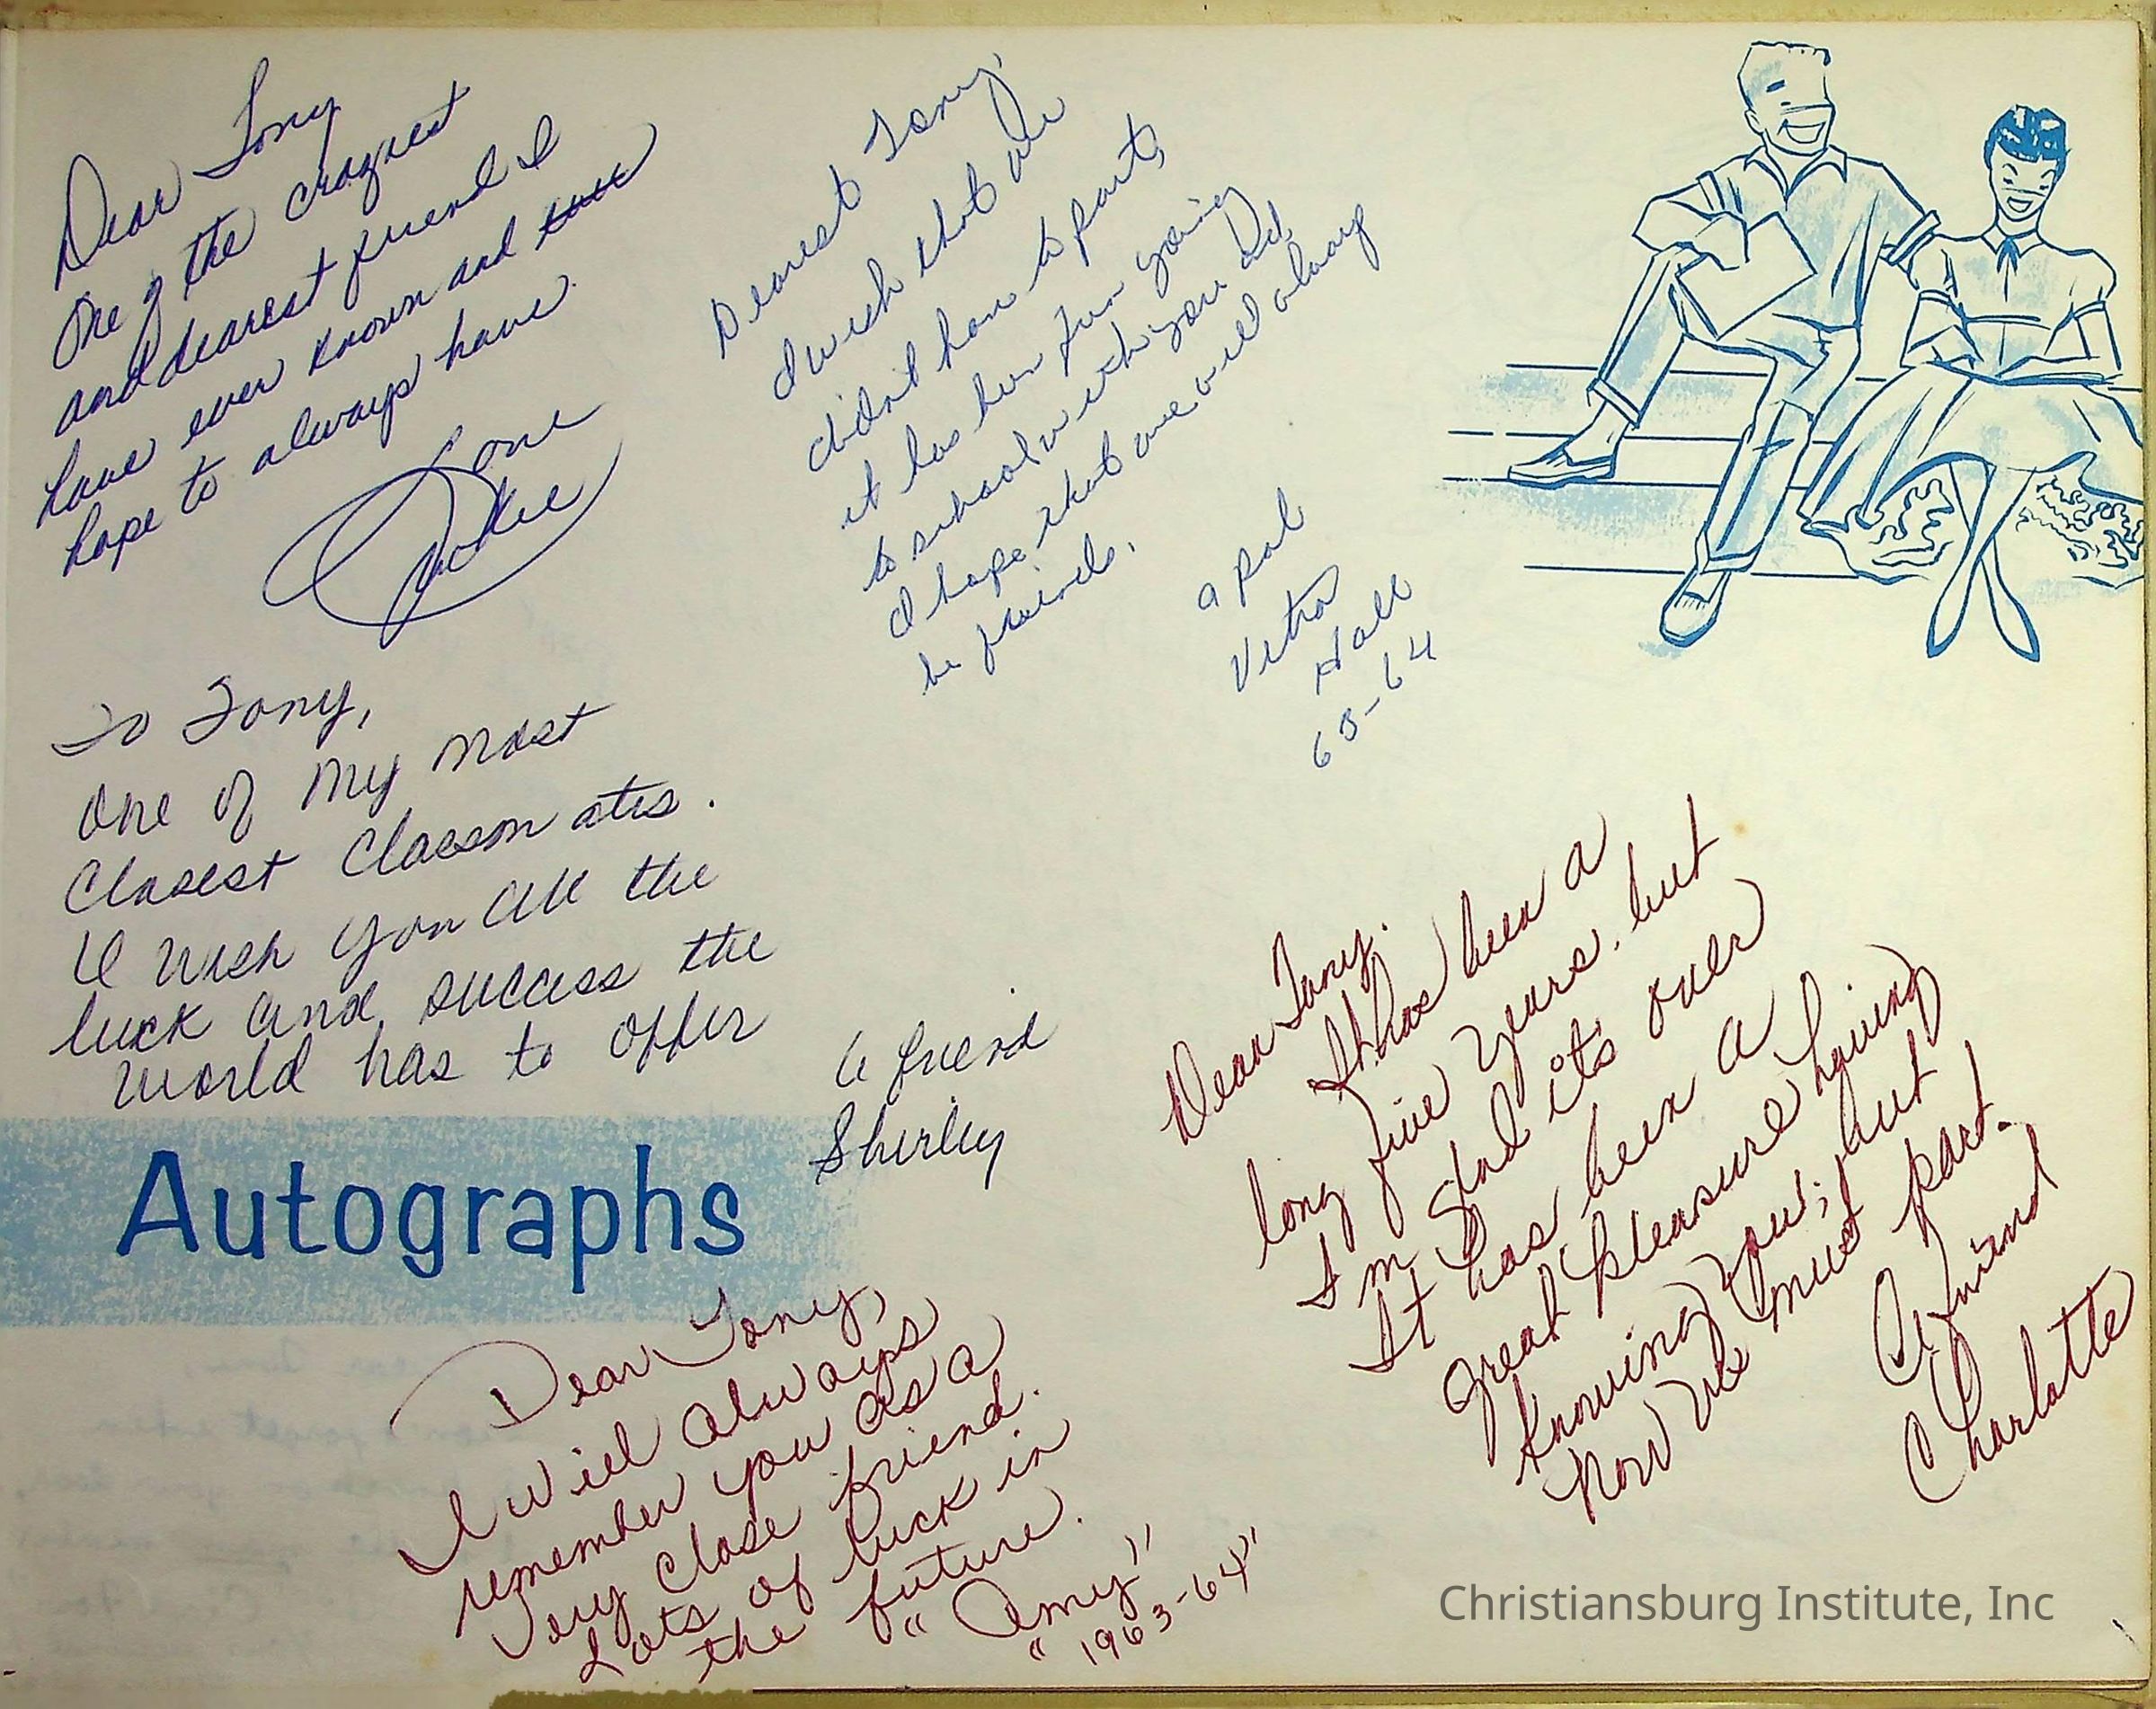 Dear Tony
One of the craziest
and dearest friend I
have ever known and
hope to always have.
Love
Jackie
Dearest Tony,
I wish that we
didn't have to part,
it has been fun going
to school with you and
I hope that we will alway
be friends.
a pal
Hall
63-64
To Tony,
One of My Most
Closest Classmates.
I wish you all the
luck and success the
world has to offer
A friend
Shirley
Autographs
Dear Tony,
It has been a
long five years, but
I'm glad its over
It has been a
great pleasure having
knowing you; but
now we must part.
A friend
Charlotte
Dear Tony,
I will always
remember you as a
very close friend.
Lots of luck in
the future.
"Amy"
"1963-64"
Christiansburg Institute, Inc